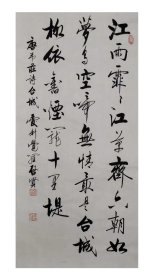 江雨霏〻江草齊六朝如
夢鳥空啼無情最是台城
柳依舊煙籠十里堤
唐韦莊詩台城